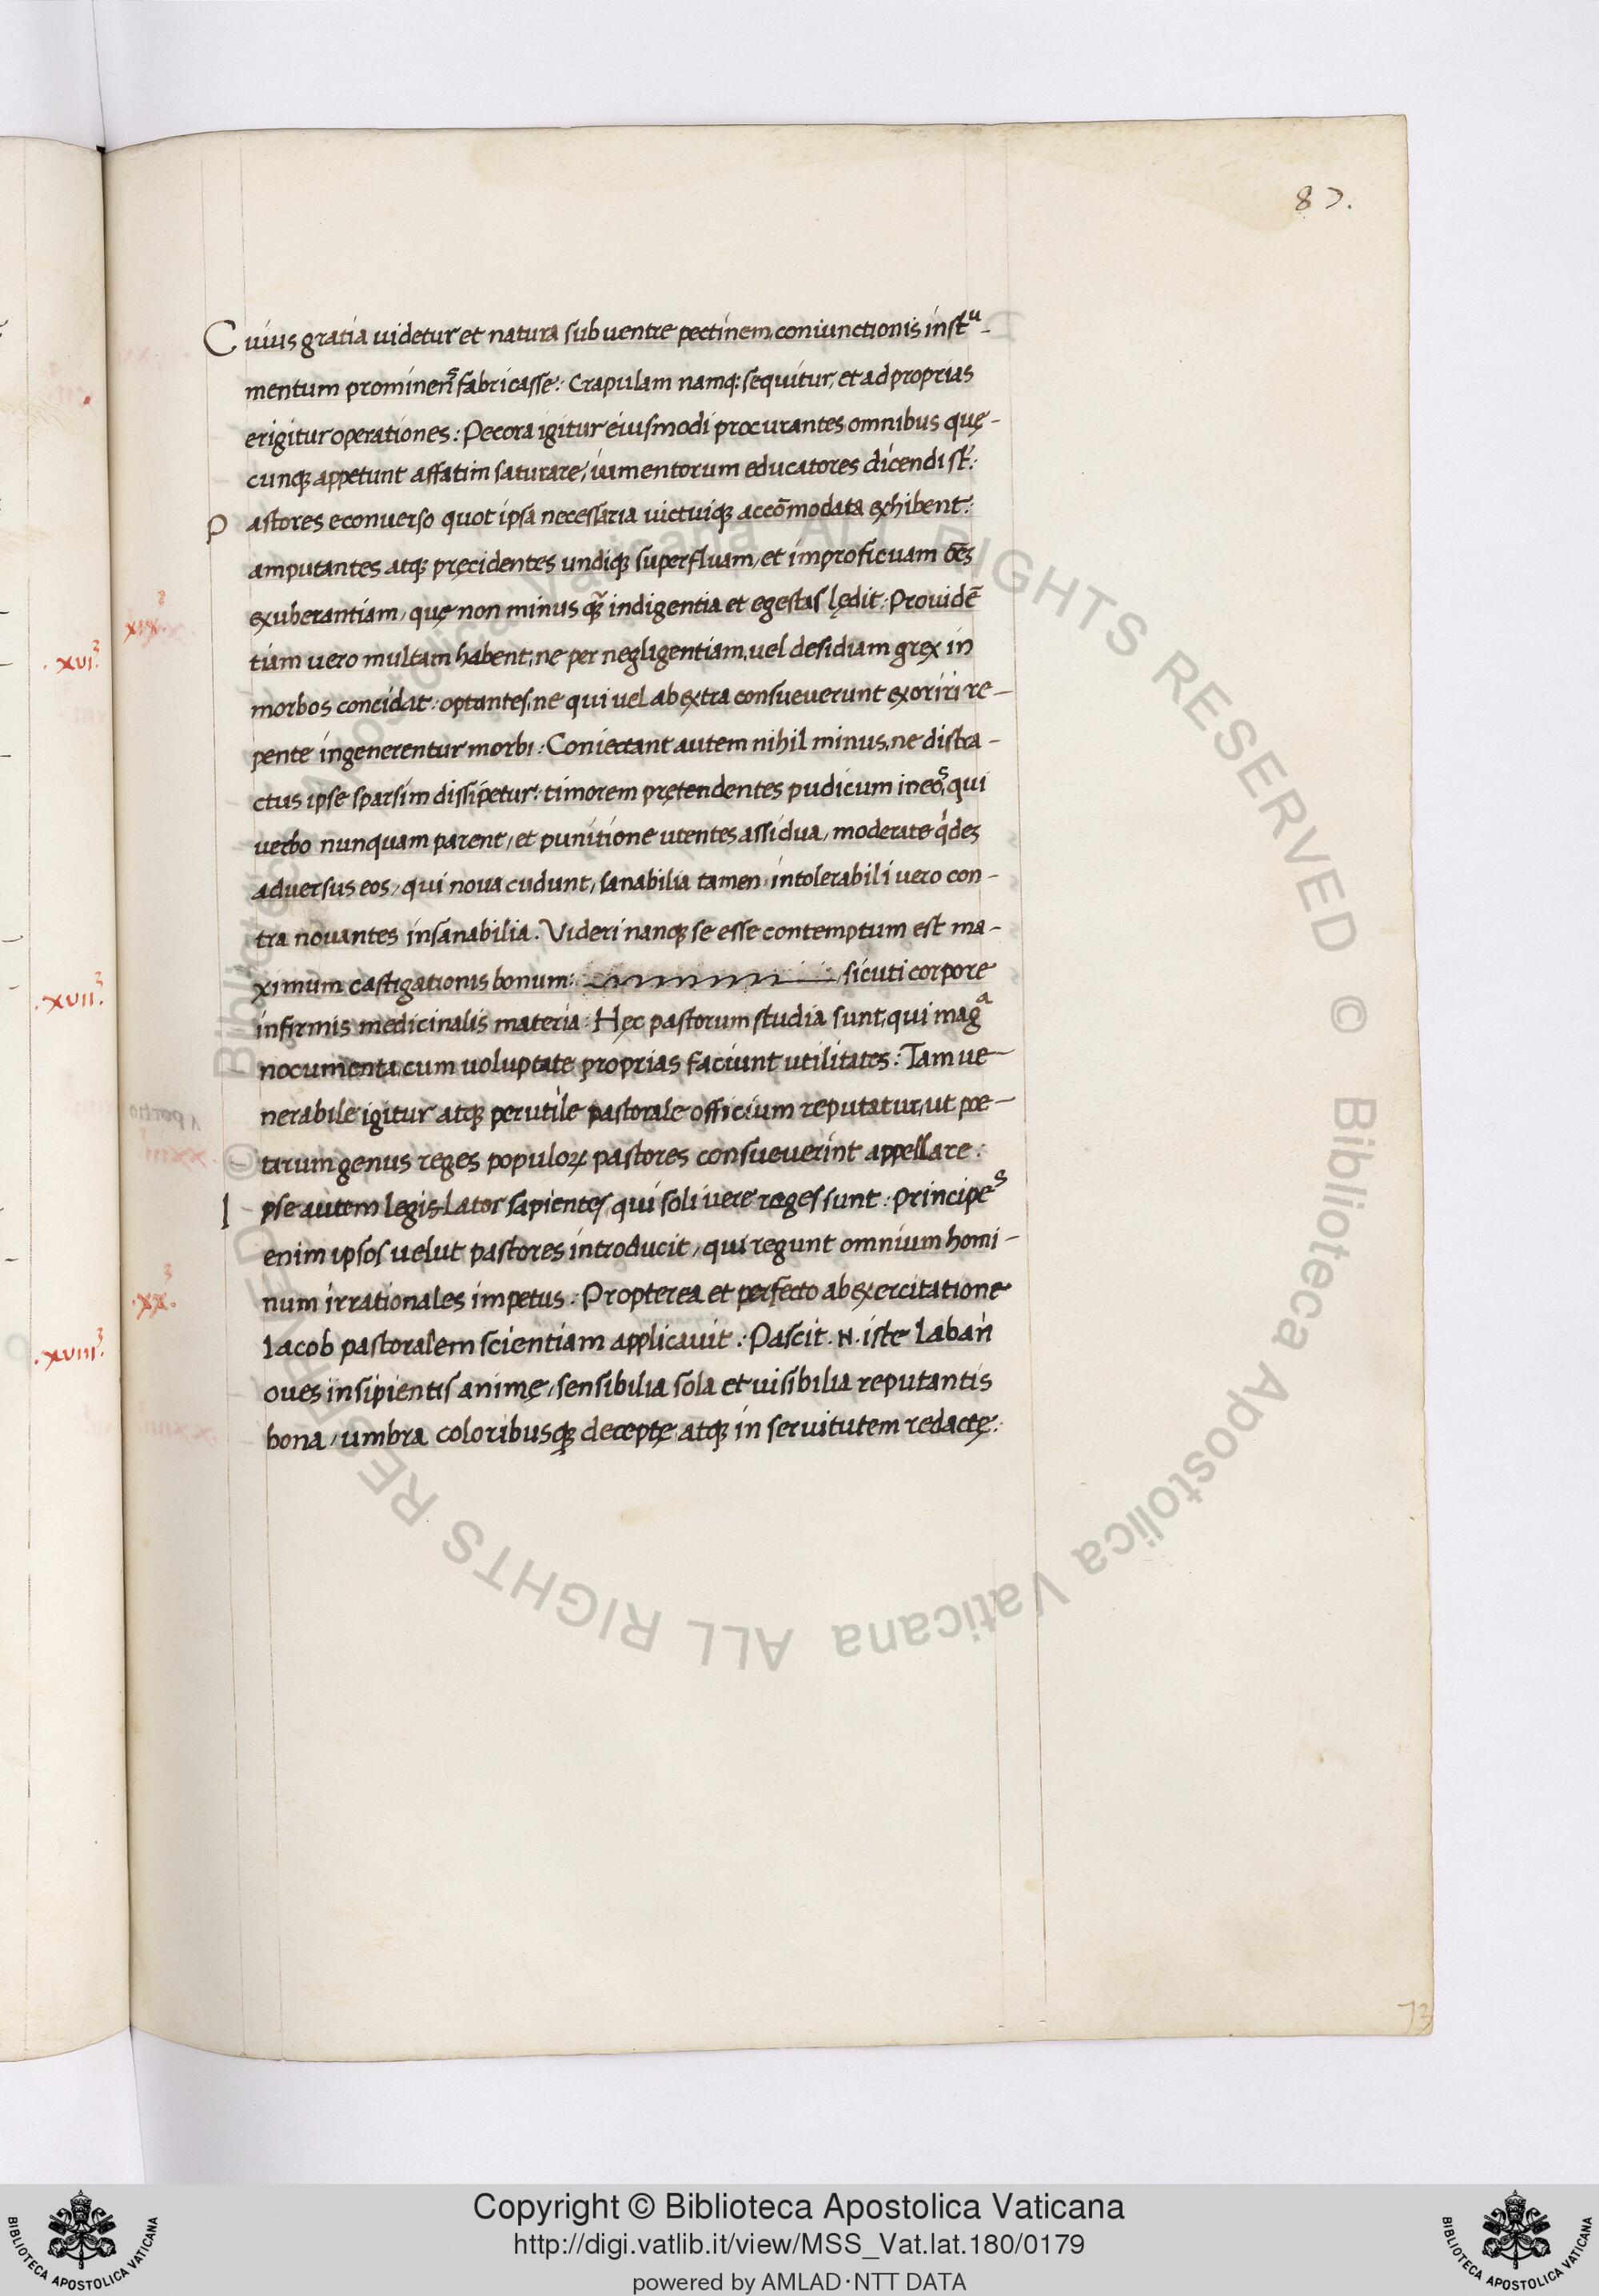 87.
Cuius gratia uidetur et natura sub uentre pectinem, coniunctionis inst͛ᵘ-
mentum prominenˢ fabricasse: Crapulam namq; sequitur, et ad proprias
erigitur operationes: Pecora igitur eiusmodi procurantes omnibus quę-
cunq; appetunt affatim saturare, iumentorum educatores dicendi st̄:
Pastores econuerso quot ipsa necessaria uictuiq; accōmodata exhibent:
amputantes atq; pręcidentes undiq; superfluam, et improficuam oēꝫ
exuberantiam, quę non minus qꝫ̃ indigentia et egestas lędit: Prouidē
tiam uero multam habent, ne per negligentiam, uel desidiam grex in
morbos concidat: optantes, ne qui uel ab extra consueuerunt exoriri re-
pente ingenerentur morbi: Coniectant autem nihil minus, ne distra-
ctus ipse sparsim dissipetur: timorem prętendentes pudicum in eoˢ, qui
uerbo nunquam parent, et punitione utentes assidua, moderate q̇deꝫ
aduersus eos, qui noua cudunt, sanabilia tamen: intolerabili uero con-
tra nouantes insanabilia. Videri nanq; se esse contemptum est ma-
ximum castigationis bonum: sicuti corpore
infirmis medicinalis materia: Hęc pastorum studia sunt, qui magᵃ
nocumenta cum uoluptate proprias faciunt utilitates: Tam ue-
nerabile igitur atq; perutile pastorale officium reputatur, ut poe-
tarum genus reges populoꝝ pastores consueuerint appellare:
Ipse autem legis-lator sapientes, qui soli uere reges sunt: principeˢ
enim ipsos uelut pastores introducit, qui regunt omnium homi-
num irrationales impetus: Propterea et perfecto ab exercitatione
Iacob pastoralem scientiam applicauit: Pascit .N. iste Laban
oues insipientis animę, sensibilia sola et uisibilia reputantis
bona, umbra coloribusq; deceptę atq; in seruitutem redactę:
.xvi.ꝫ
xix
.xvii.ꝫ
.xx.ꝫ
.xviii.ꝫ
73
© Biblioteca Apostolica Vaticana ALL RIGHTS RESERVED © Biblioteca Apostolica Vaticana ALL RIGHTS RESERVED
Copyright © Biblioteca Apostolica Vaticana
http://digi.vatlib.it/view/MSS_Vat.lat.180/0179
powered by AMLAD·NTT DATA
BIBLIOTECA APOSTOLICA VATICANA
BIBLIOTECA APOSTOLICA VATICANA